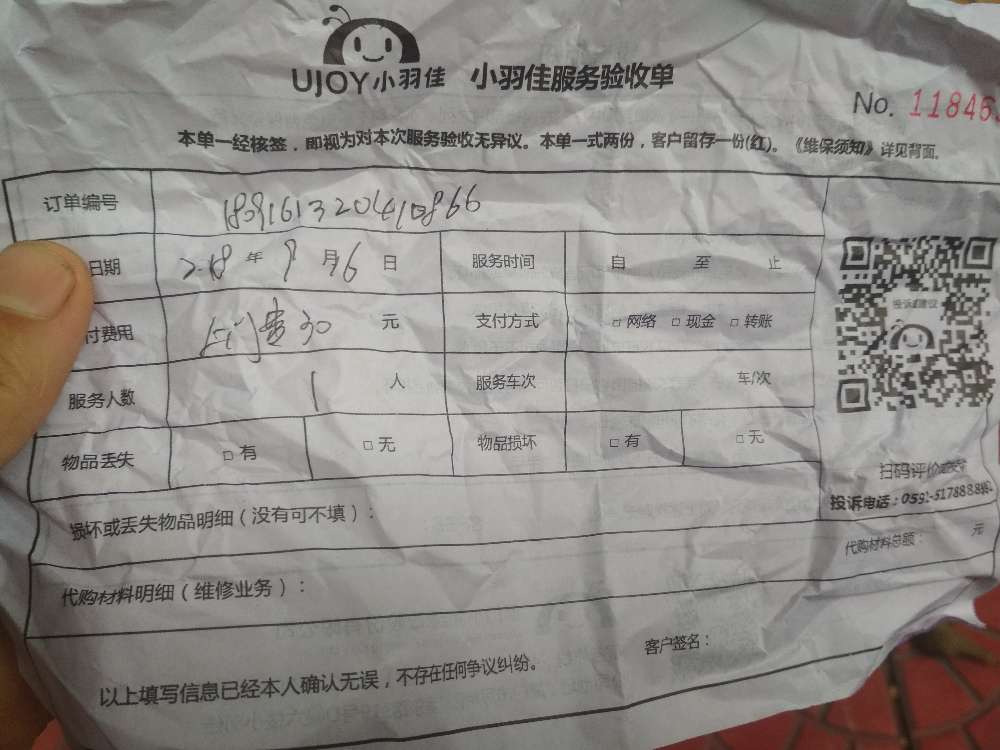 UJOY小羽佳 小羽佳服务验收单
No. 11846
本单一经核签，即视为对本次服务验收无异议。本单一式两份，客户留存一份(红)。《维保须知》详见背面。
订单编号
日期 年 9 月 6 日 服务时间 自 至 止
付费用 上门费30 元 支付方式 □ 网络 □ 现金 □ 转账
服务人数 1 人 服务车次 车/次
物品丢失 □ 有 □ 无 物品损坏 □ 有 □ 无
投诉建议
扫码评价
投诉电话：0592-5178888
损坏或丢失物品明细（没有可不填）：
代购材料明细（维修业务）：
代购材料总额： 元
客户签名：
以上填写信息已经本人确认无误，不存在任何争议纠纷。